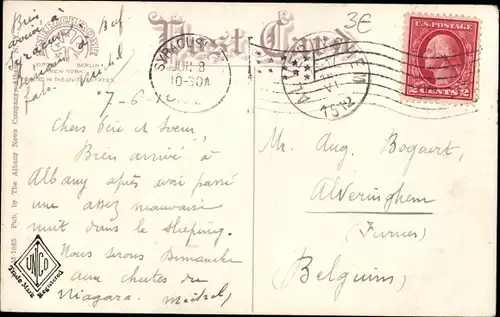 3€
Post Card
U.S. POSTAGE
2 CENTS 2
SYRACUSE
JUN 8
10-30A
1912
NEW YORK
BERLIN
Pub. by The Albany News Company
7-6-12
Chers Père et Soeur,
Bien arrivé à
Albany après avoir passé
une assez mauvaise
nuit dans le sleeping.
Nous serons Dimanche
aux chutes du
Niagara.
Mr. Aug. Bogaert
Alveringhem
(Furnes)
(Belguim)
UNCO
Trade Mark Registered